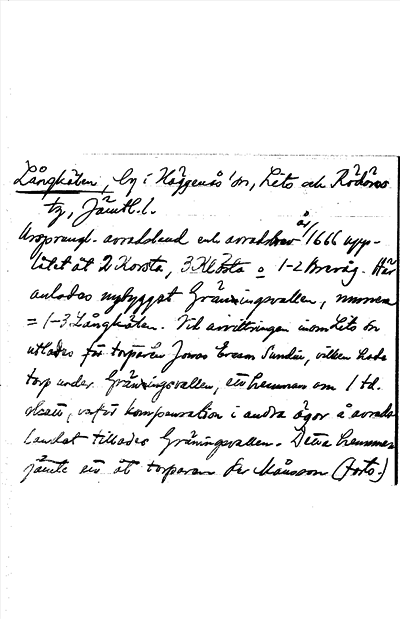 Långkälen, by i Häggenås sn, Lits och Rödöns
tg, Jämtl. l.
Ursprungl. avradsland enl. avradsbrev år 1666 upp-
låtet åt 2 Korsta, 3 Klösta o 1-2 Brevåg. Här
anlades nybygget Gräningsvallen, numera
= 1-3 Långkälen. Vid avvittringen inom Lits sn
utlades för torparen Jonas Ersson Sundin, vilken hade
torp under Gräningsvallen, ett hemman om 1 td.
skatt, varför kompensation i andra ägor å avrads-
landet tillades Gräningsvallen. Detta hemman
jämte ett åt torparen Per Månsson (forts.)